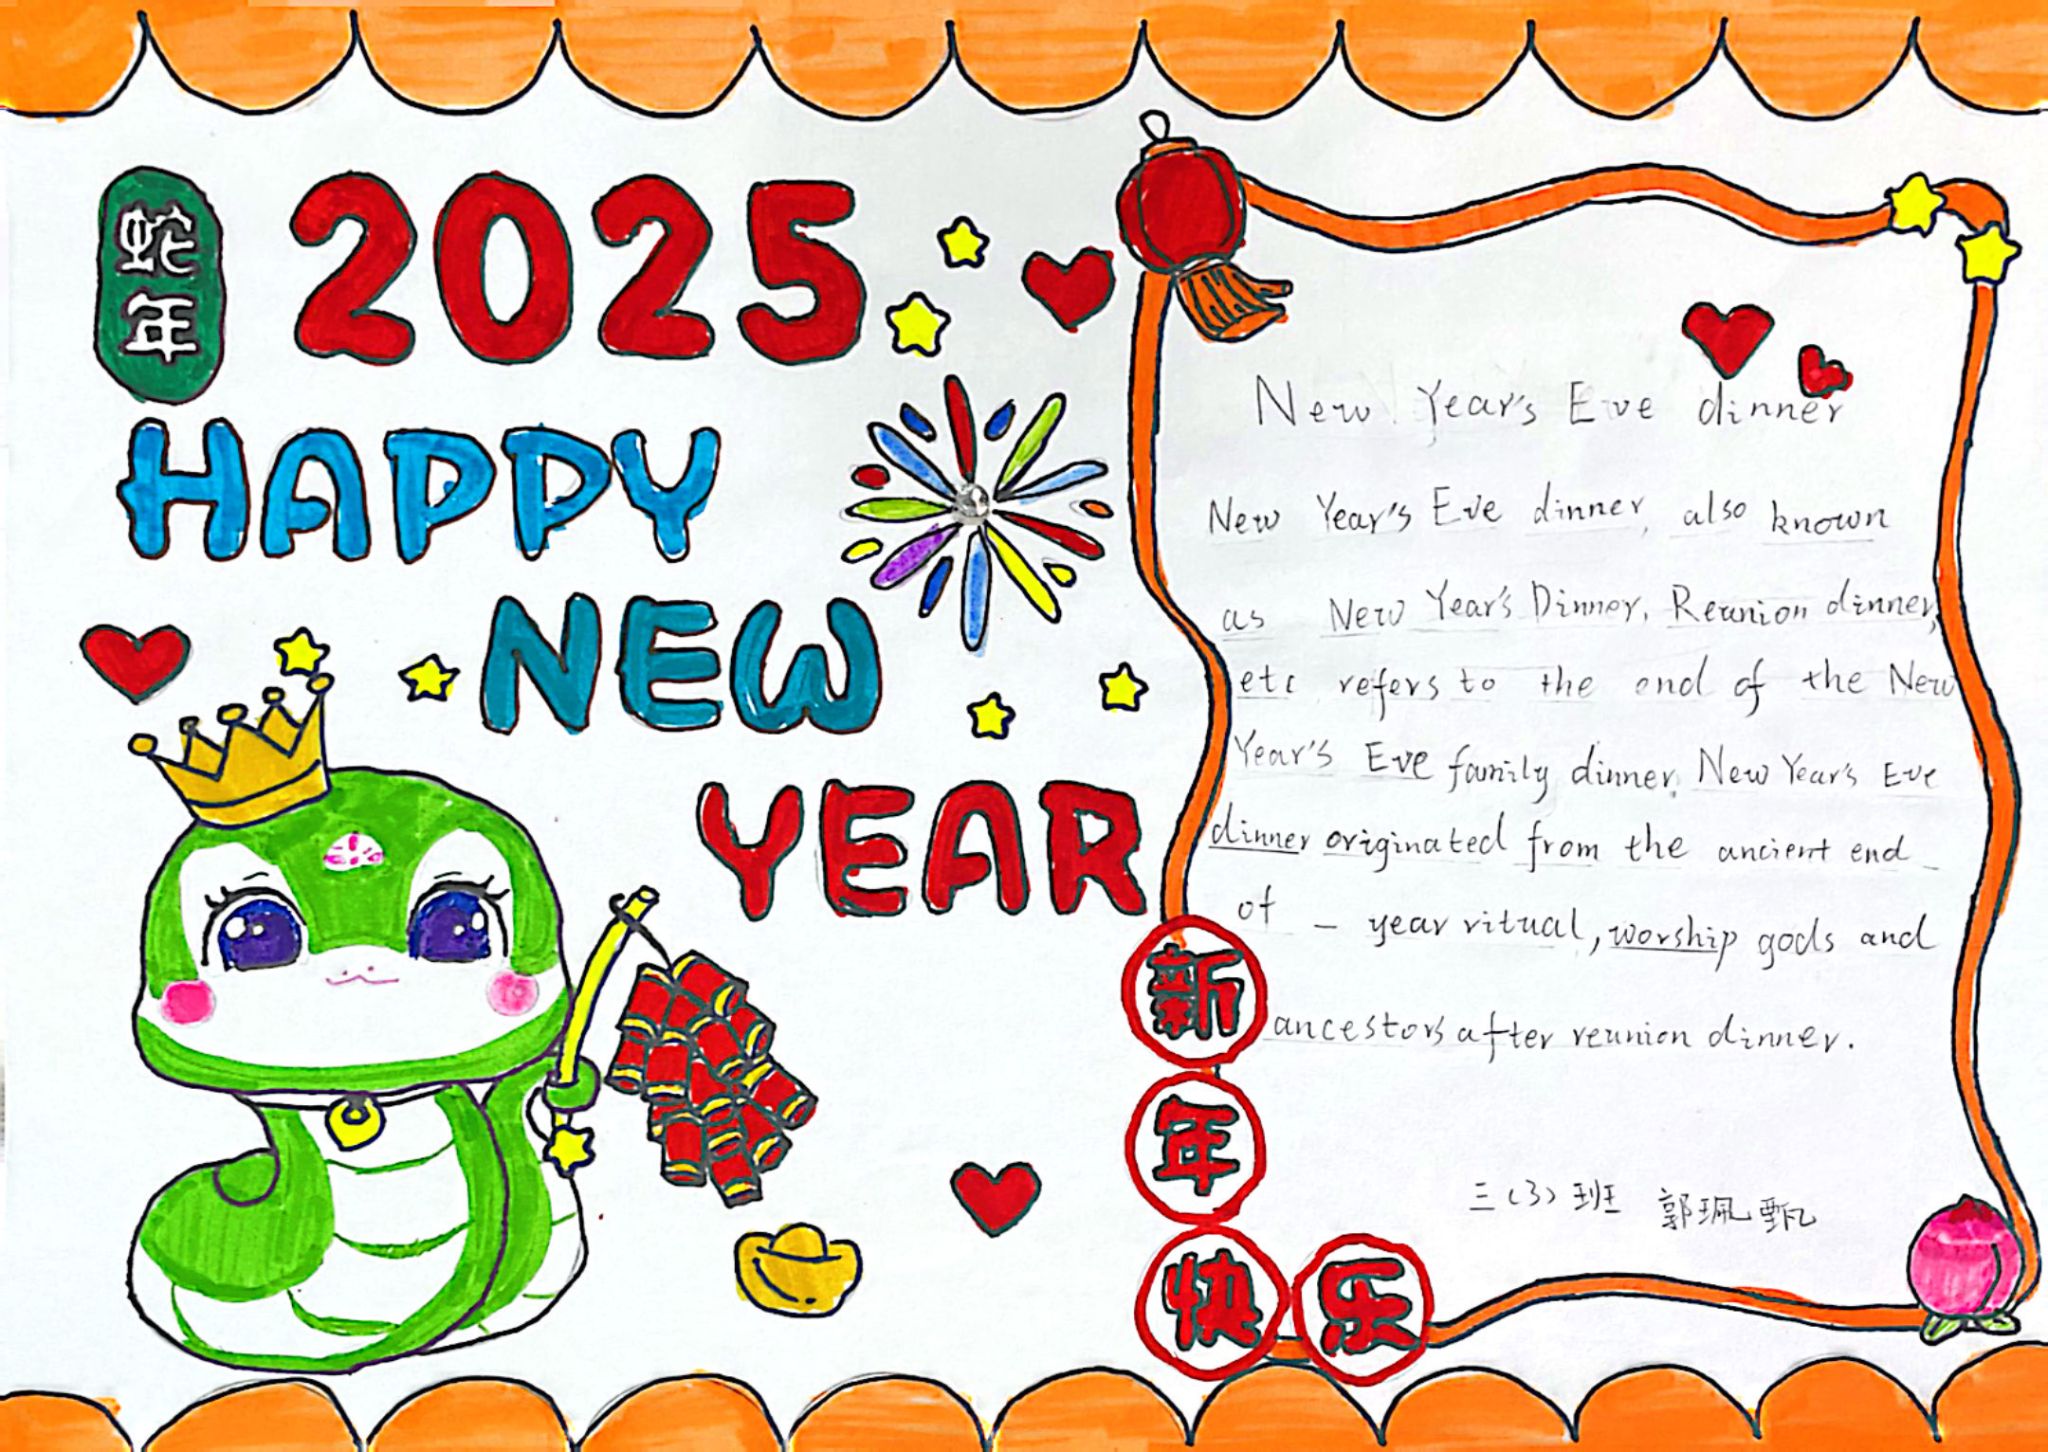 蛇年
2025
HAPPY
NEW
YEAR
New Year's Eve dinner
New Year's Eve dinner, also known
as New Year's Dinner, Reunion dinner,
etc refers to the end of the New
Year's Eve family dinner. New Year's Eve
dinner originated from the ancient end
of - year ritual, worship gods and
ancestors after reunion dinner.
三(3)班 郭珮甄
新
年
快乐